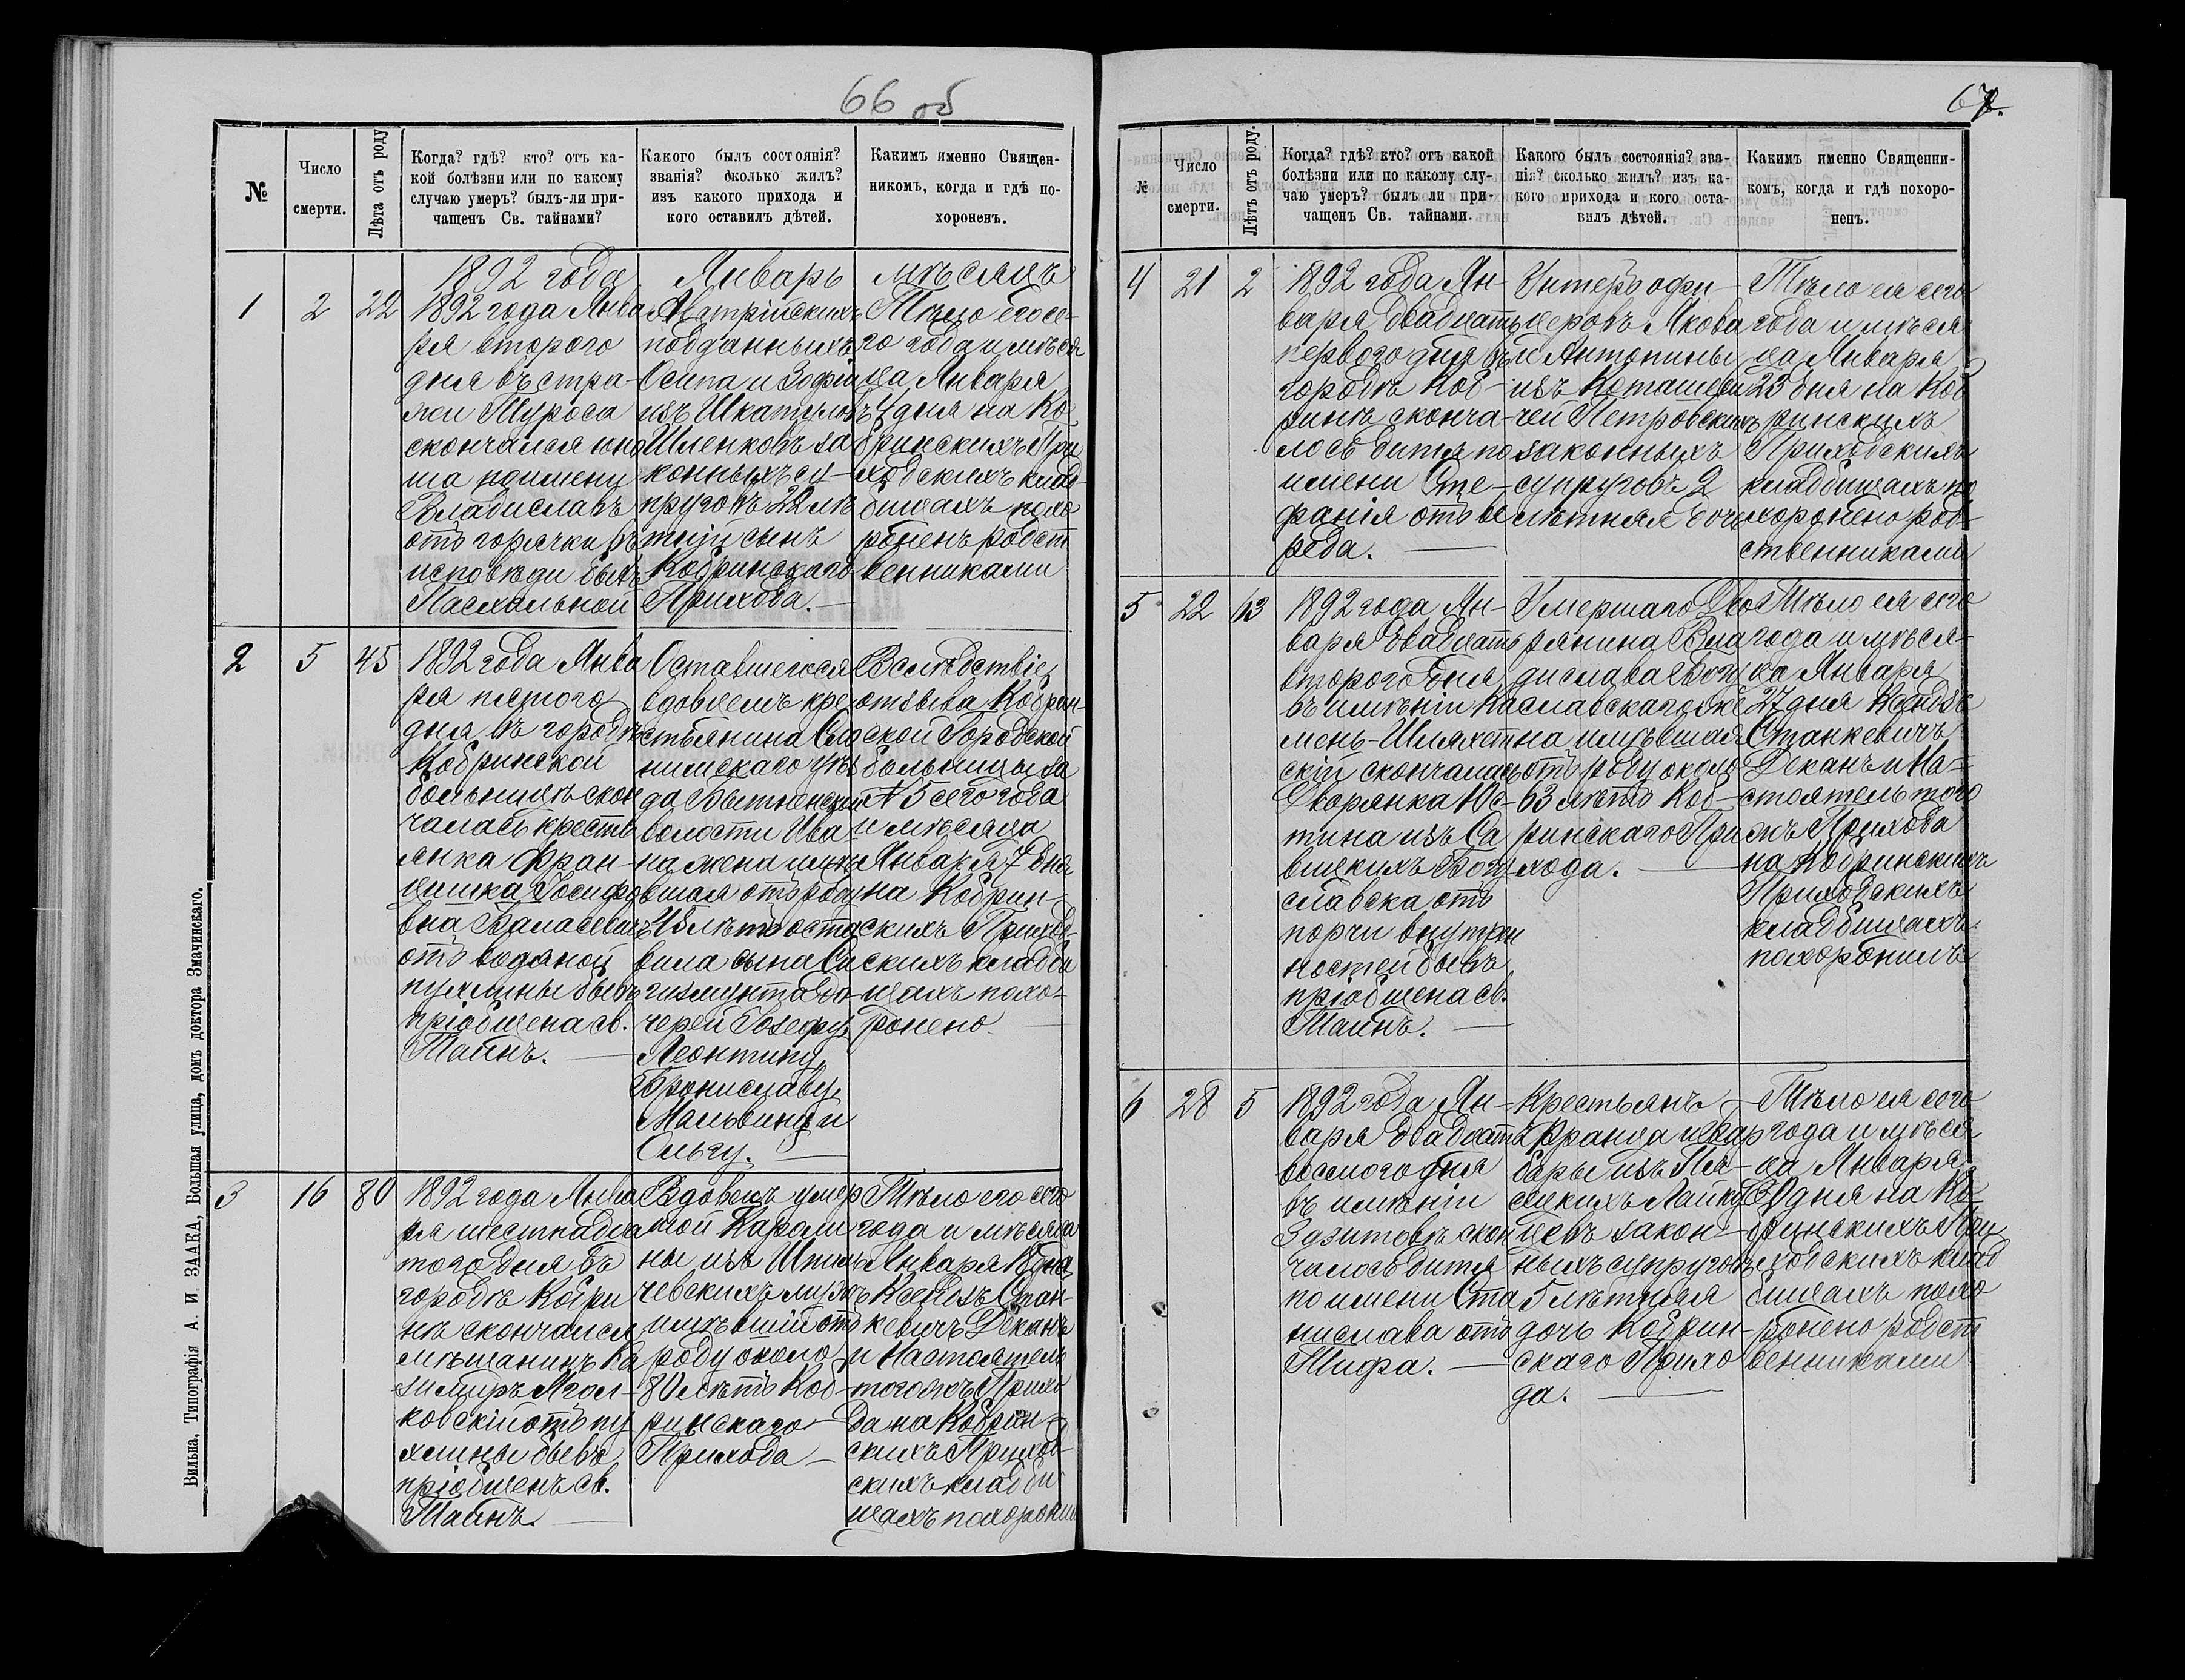 66 об
№
Число
смерти.
Лѣта отъ роду
Когда? гдѣ? кто? отъ ка-
кой болѣзни или по какому
случаю умеръ? былъ-ли при-
чащенъ Св. тайнами?
Какого былъ состоянія?
званія? сколько жилъ?
изъ какого прихода и
кого оставилъ дѣтей.
Какимъ именно Священ-
никомъ, когда и гдѣ по-
хороненъ.
1892 года Январь мѣсяцъ
1
2
22
1892 года Янва
ря второго
дня въ стра-
жи Туроса
скончался юно
ша по имени
Владиславъ
отъ горячки въ
исповѣди бывъ
Пасхальной
Австрійскихъ
подданныхъ
Осипа и Зофіи
изъ Шкатулокъ
Шленковъ за
конныхъ су-
пруговъ 22 лѣ
тній сынъ
Кобринскаго
Прихода.
Тѣло его се-
го года и мѣся
ца Января
4 дня на Ко
бринскихъ При
ходскихъ клад-
бищахъ похо
роненъ родст
венниками
2
5
45
1892 года Янва
ря пятого
дня въ городѣ
Кобринской
больницѣ скон
чалась крестья
янка Фран-
цишка Іосифо
вна Балабевичъ
отъ водяной
пухлины бывъ
пріобщена св.
Таинъ.
Оставшегося
вдовцемъ кре
стьянина Сло
нимскаго уѣз
да Бытенской
волости Ива
на жена имѣ
вшая отъ роду
45 лѣтъ оста
вила сына Си
гизмунта до-
черей Іозефу,
Леонтину,
Брониславу,
Мальвину и
Ольгу.
Вслѣдствіе
отзыва Кобрин-
ской Городской
больницы за
№ 5 сего года
и мѣсяца
Января 7 дня
на Кобрин-
скихъ Приход-
скихъ кладби
щахъ похо-
ронено.
3
16
80
1892 года Янва
ря шестнадца
того дня въ
городѣ Кобри
нѣ скончался
мѣщанинъ Ка
зимиръ Ягол-
ковскій отъ пу
хлины бывъ
пріобщенъ св.
Таинъ.
Вдовецъ умер
шой Кароли
ны изъ Шпиль
чевскихъ мужъ
имѣвшій отъ
роду около
80 лѣтъ Коб-
ринскаго
Прихода
Тѣло его сего
года и мѣсяца
Января 18 дня
Ксендзъ Стан-
кевичъ Деканъ
и Настоятель
тогожъ Прихо
да на Кобрин-
скихъ Приход-
скихъ кладби
щахъ похоронилъ
Вильна, Типографія А. И. ЗААКА, Большая улица, домъ доктора Змачинскаго.
67.
№
Число
смерти.
Лѣтъ отъ роду.
Когда? гдѣ? кто? отъ какой
болѣзни или по какому слу-
чаю умеръ? былъ ли при-
чащенъ Св. тайнами.
Какого былъ состоянія? зва-
нія? сколько жилъ? изъ ка-
кого прихода и кого оста-
вилъ дѣтей.
Какимъ именно Священни-
комъ, когда и гдѣ похоро-
ненъ.
4
21
2
1892 года Ян-
варя двадцать
первого дня въ
городѣ Коб-
ринѣ сконча-
лось дитя по
имени Сте-
фанія отъ ве
реда.
Унтеръ офи-
церовъ Якова
и Антонины
изъ Коташеви
чей Петровскихъ
законныхъ
супруговъ 2
лѣтняя дочь
Тѣло ея сего
года и мѣся
ца Января
23 дня на Коб
ринскихъ
Приходскихъ
кладбищахъ по
хоронено род-
ственниками
5
22
63
1892 года Ян-
варя двадцать
второго дня
въ имѣніи Ка
мень-Шляхет
скій скончалась
Дворянка Юс-
тина изъ Са
вицкихъ Богу
славска отъ
порчи внутрен
ностей бывъ
пріобщена св.
Таинъ.
Умершаго Дво
рянина Вла
дислава Богу
славскаго же
на имѣвшая
отъ роду около
63 лѣтъ Коб-
ринскаго При
хода.
Тѣло ея сего
года и мѣся-
ца Января
27 дня Ксендзъ
Станкевичъ
Деканъ и На-
стоятель того
жъ Прихода
на Кобринскихъ
Приходскихъ
кладбищахъ
похоронилъ
6
28
5
1892 года Ян-
варя двадцать
восмого дня
въ имѣніи
Здзитовѣ скон
чалось дитя
по имени Ста
нислава отъ
Тифа.
Крестьянъ
Франца и Вар
бары изъ
Лайков
цевъ закон-
ныхъ супруговъ
5 лѣтняя
дочь Кобрин-
скаго Прихо
да.
Тѣло ея сего
года и мѣся
ца Января
30 дня на Ко
бринскихъ При
ходскихъ клад
бищахъ похо
ронено родст
венниками